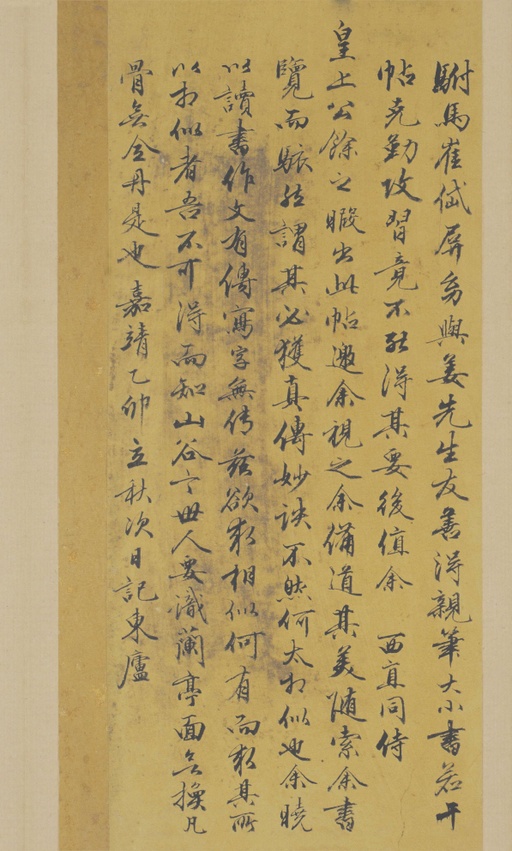 駙馬崔岱屏旁與姜先生友善得親筆大小書若干
帖克勤攻習竟不能得其要後值余 西直同侍
皇上公餘之暇出此帖邀余視之余備道其美随索余書
覽而駭然謂其必獲真傳妙訣不然何太相似也余曉
以讀書作文有傳寫字無传茲欲求相似何有而求其所
以相似者吾不可得而知山谷云世人要識蘭亭面無換凡
骨無金丹是也嘉靖乙卯立秋次日記東廬